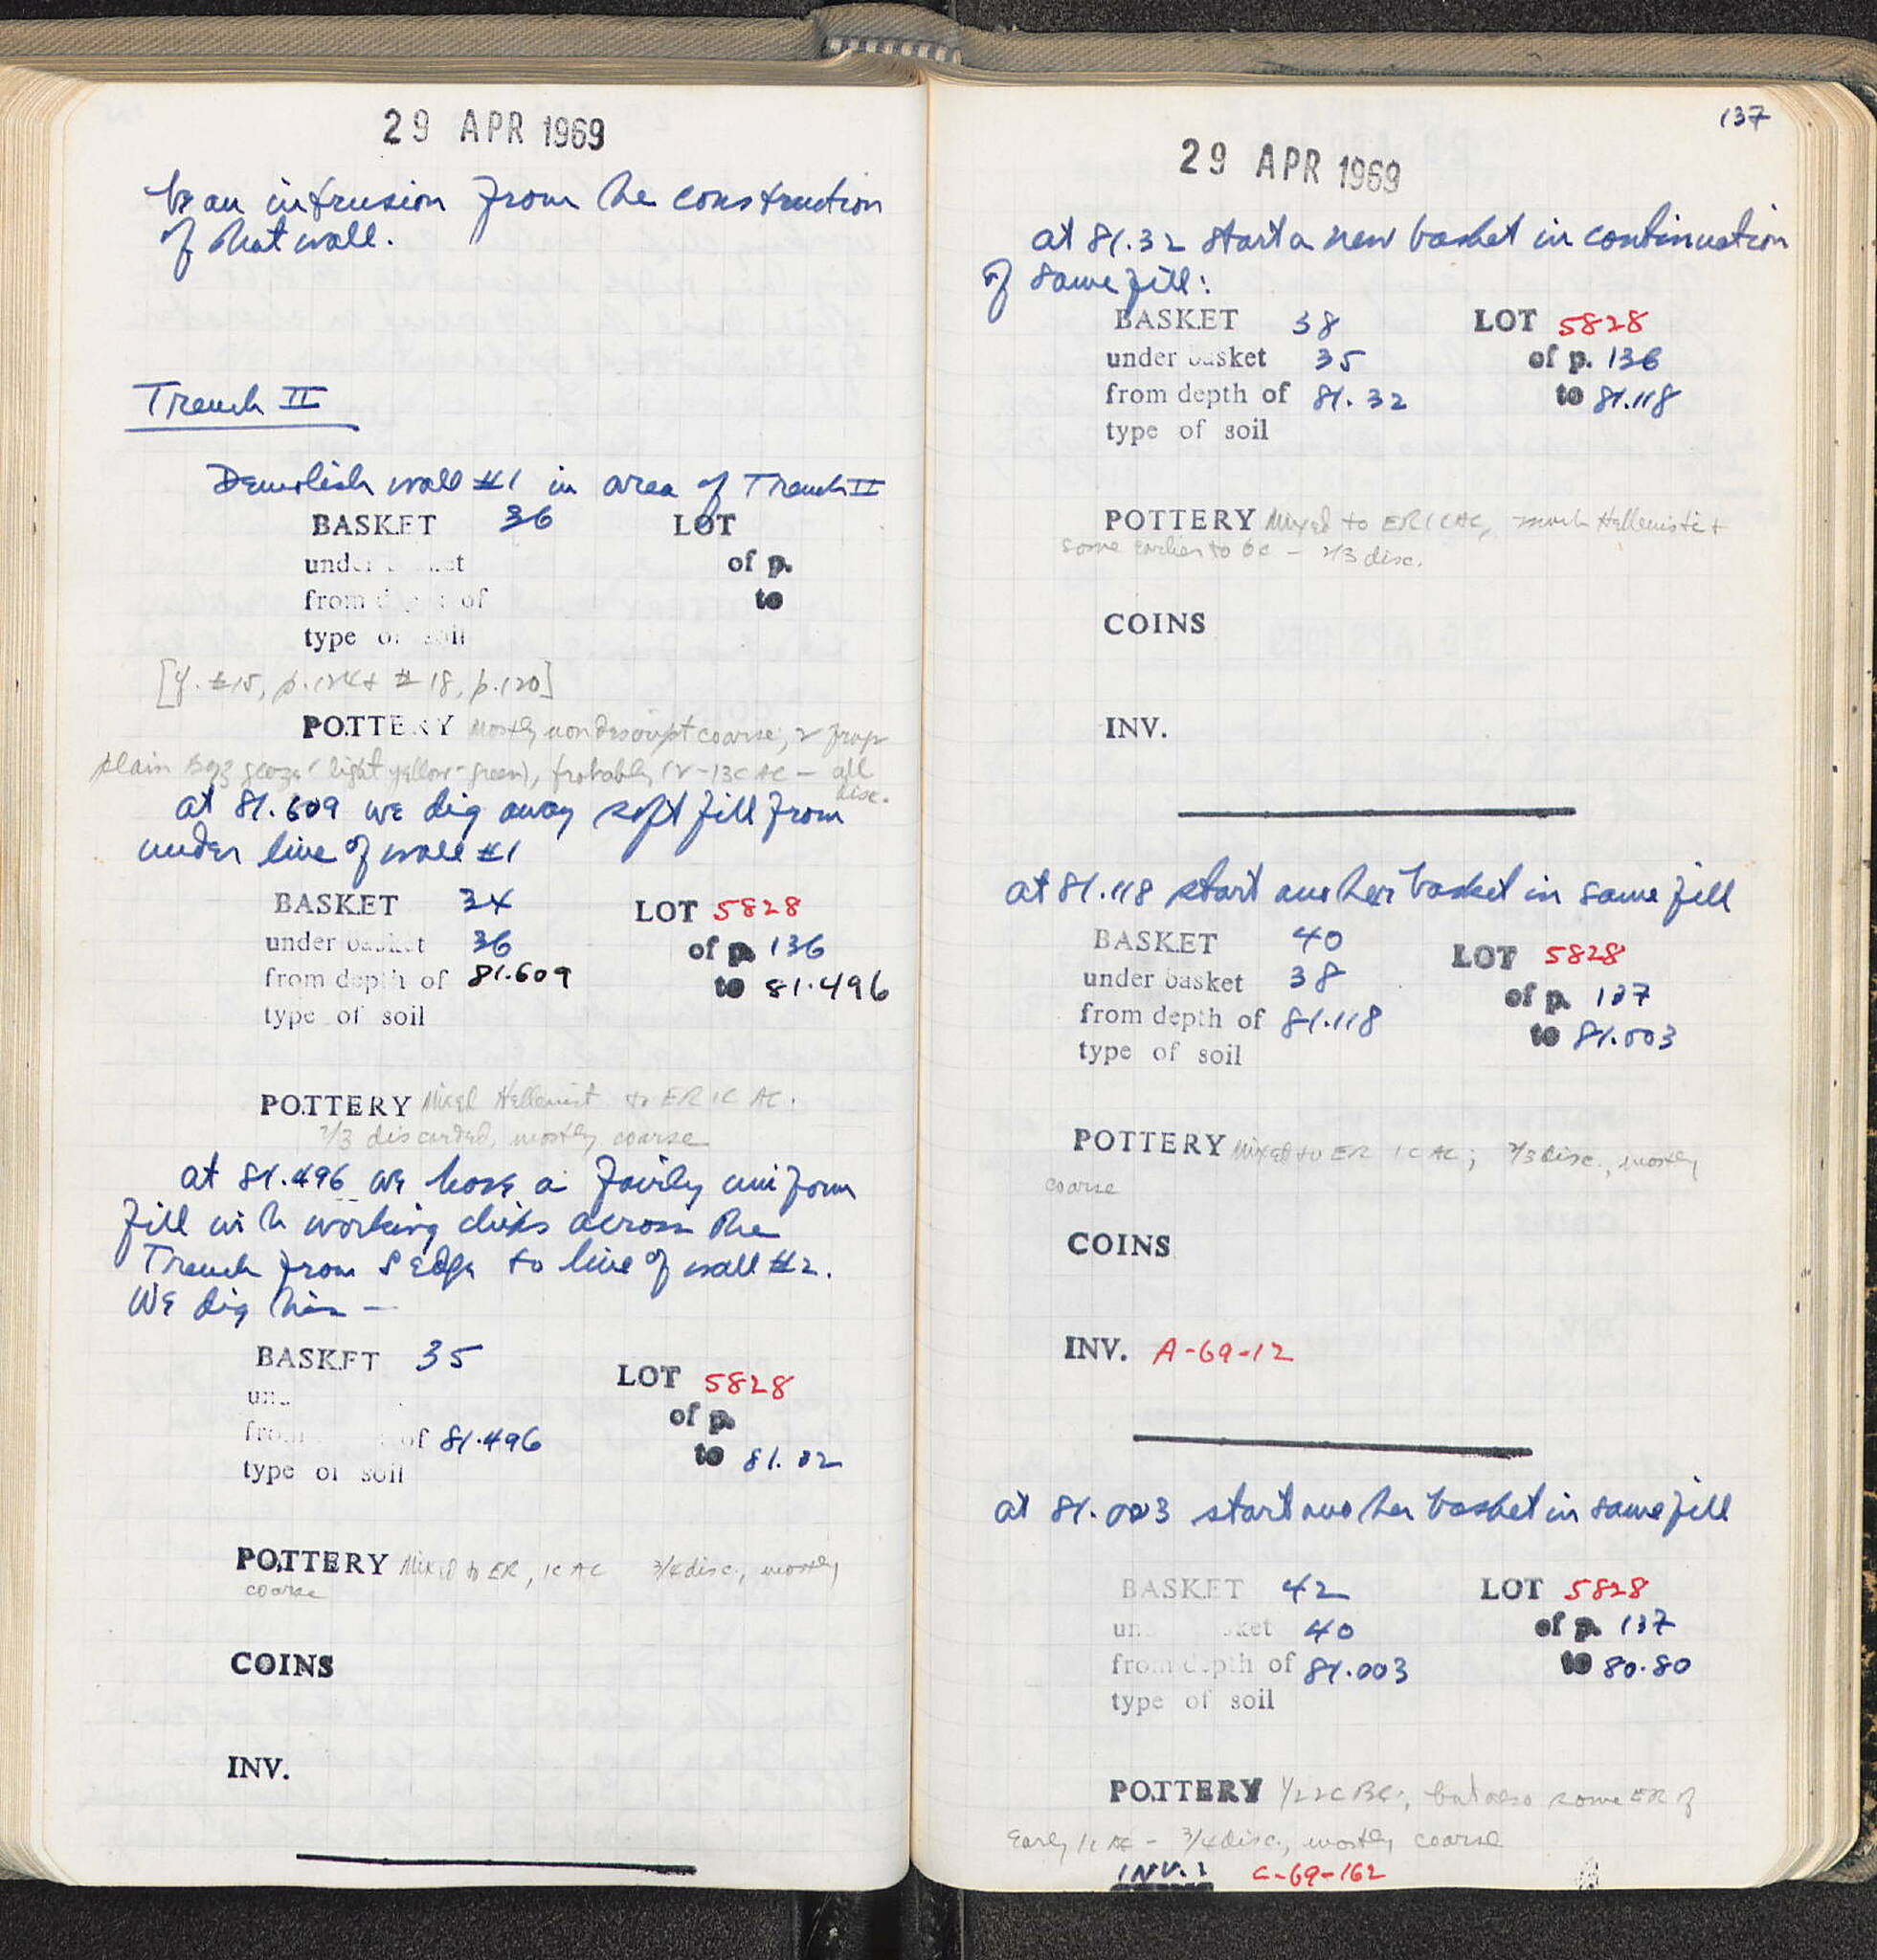 29 APR 1969
be an intrusion from the construction
of that wall.
Trench II
Demolish wall #1 in area of Trench II
BASKET 36 LOT
under basket of p.
from depth of to
type of soil
[cf. #15, p.124 + #18, p.120]
POTTERY Mostly nondescript coarse, 2 frags
plain Byz glaze (light yellow-green), probably 12-13C AC — all
disc.
at 81.609 we dig away soft fill from
under line of wall #1
BASKET 34 LOT 5828
under basket 36 of p. 136
from depth of 81.609 to 81.496
type of soil
POTTERY Mixed Hellenist. to ER 1C AC.
2/3 discarded, mostly coarse
at 81.496 we have a fairly uniform
fill with working chips across the
Trench from S edge to line of wall #2.
WE dig this —
BASKET 35 LOT 5828
under of p.
from of 81.496 to 81.32
type of soil
POTTERY Mixed to ER, 1C AC 3/4 disc., mostly
coarse
COINS
INV.
137
29 APR 1969
at 81.32 start a new basket in continuation
of same fill:
BASKET 38 LOT 5828
under basket 35 of p. 136
from depth of 81.32 to 81.118
type of soil
POTTERY Mixed to ER 1C AC, much Hellenistic +
some earlier to 6C — 2/3 disc.
COINS
INV.
at 81.118 start another basket in same fill
BASKET 40 LOT 5828
under basket 38 of p. 137
from depth of 81.118 to 81.003
type of soil
POTTERY Mixed to ER 1C AC; 2/3 disc., mostly
coarse
COINS
INV. A-69-12
at 81.003 start another basket in same fill
BASKET 42 LOT 5828
under basket 40 of p. 137
from depth of 81.003 to 80.80
type of soil
POTTERY 1/2 2C BC, but also some ER of
Early 1C AC — 3/4 disc., mostly coarse
INV.: C-69-162